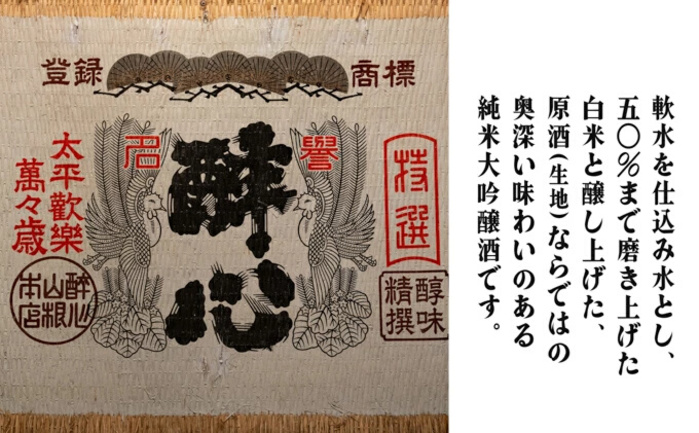 登録
商標
名
譽
酔心
特選
醇味
精撰
太平歡樂
萬々歳
醉心
山根
本店
軟水を仕込み水とし、
五〇％まで磨き上げた
白米と醸し上げた、
原酒(生地)ならではの
奥深い味わいのある
純米大吟醸酒です。